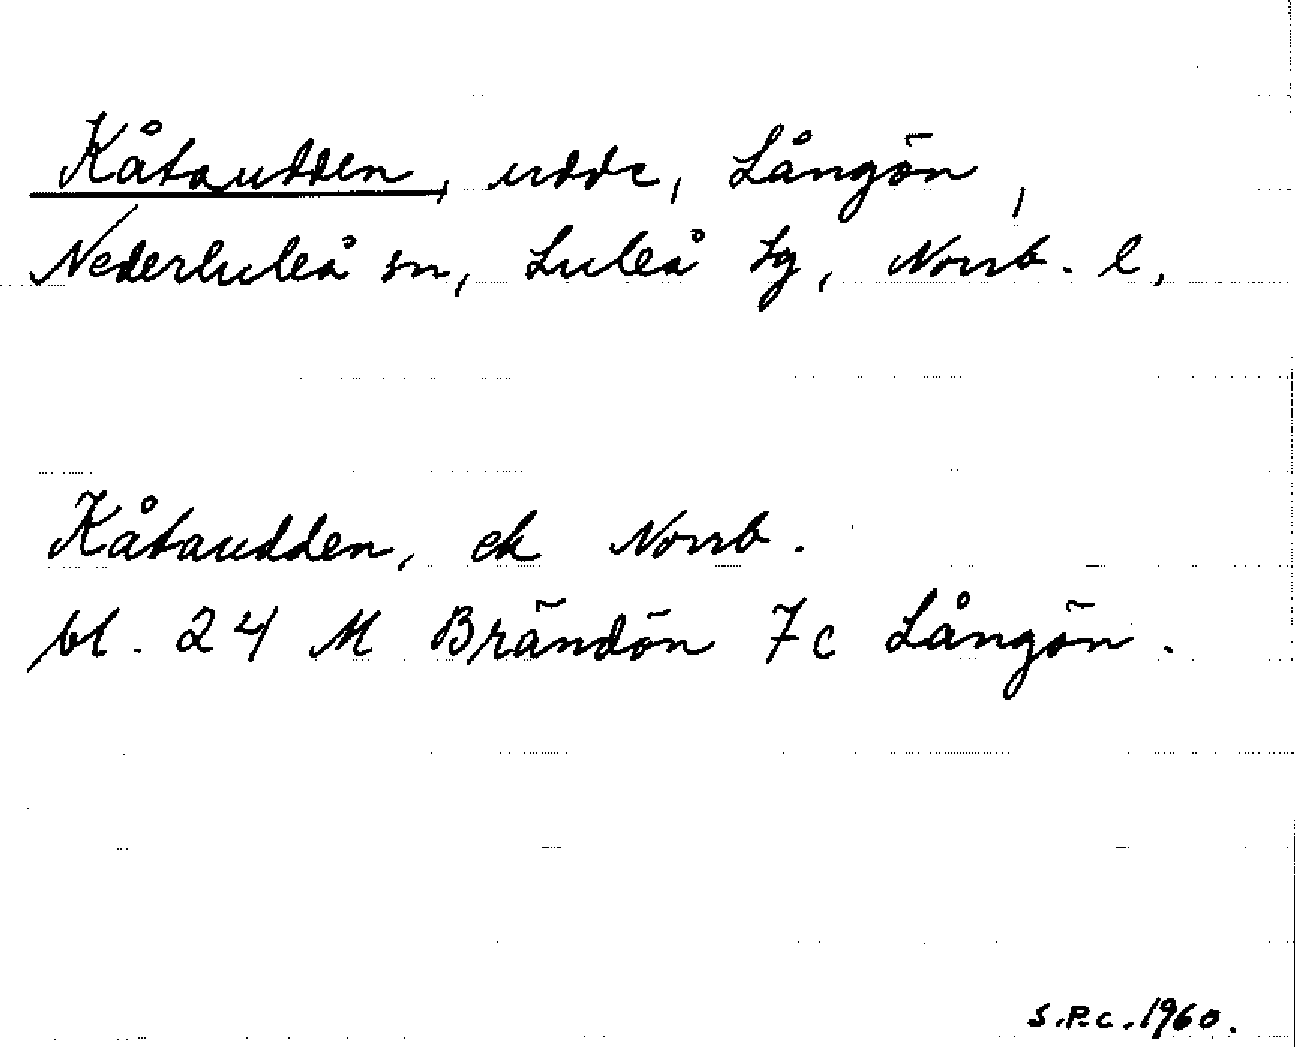 Kåtaudden, udde, Långön,
Nederluleå sn, Luleå tg, Norrb. l.
Kåtaudden, ek Norrb.
bl. 24 M Brändön 7c Långön.
S.P.C. 1960.